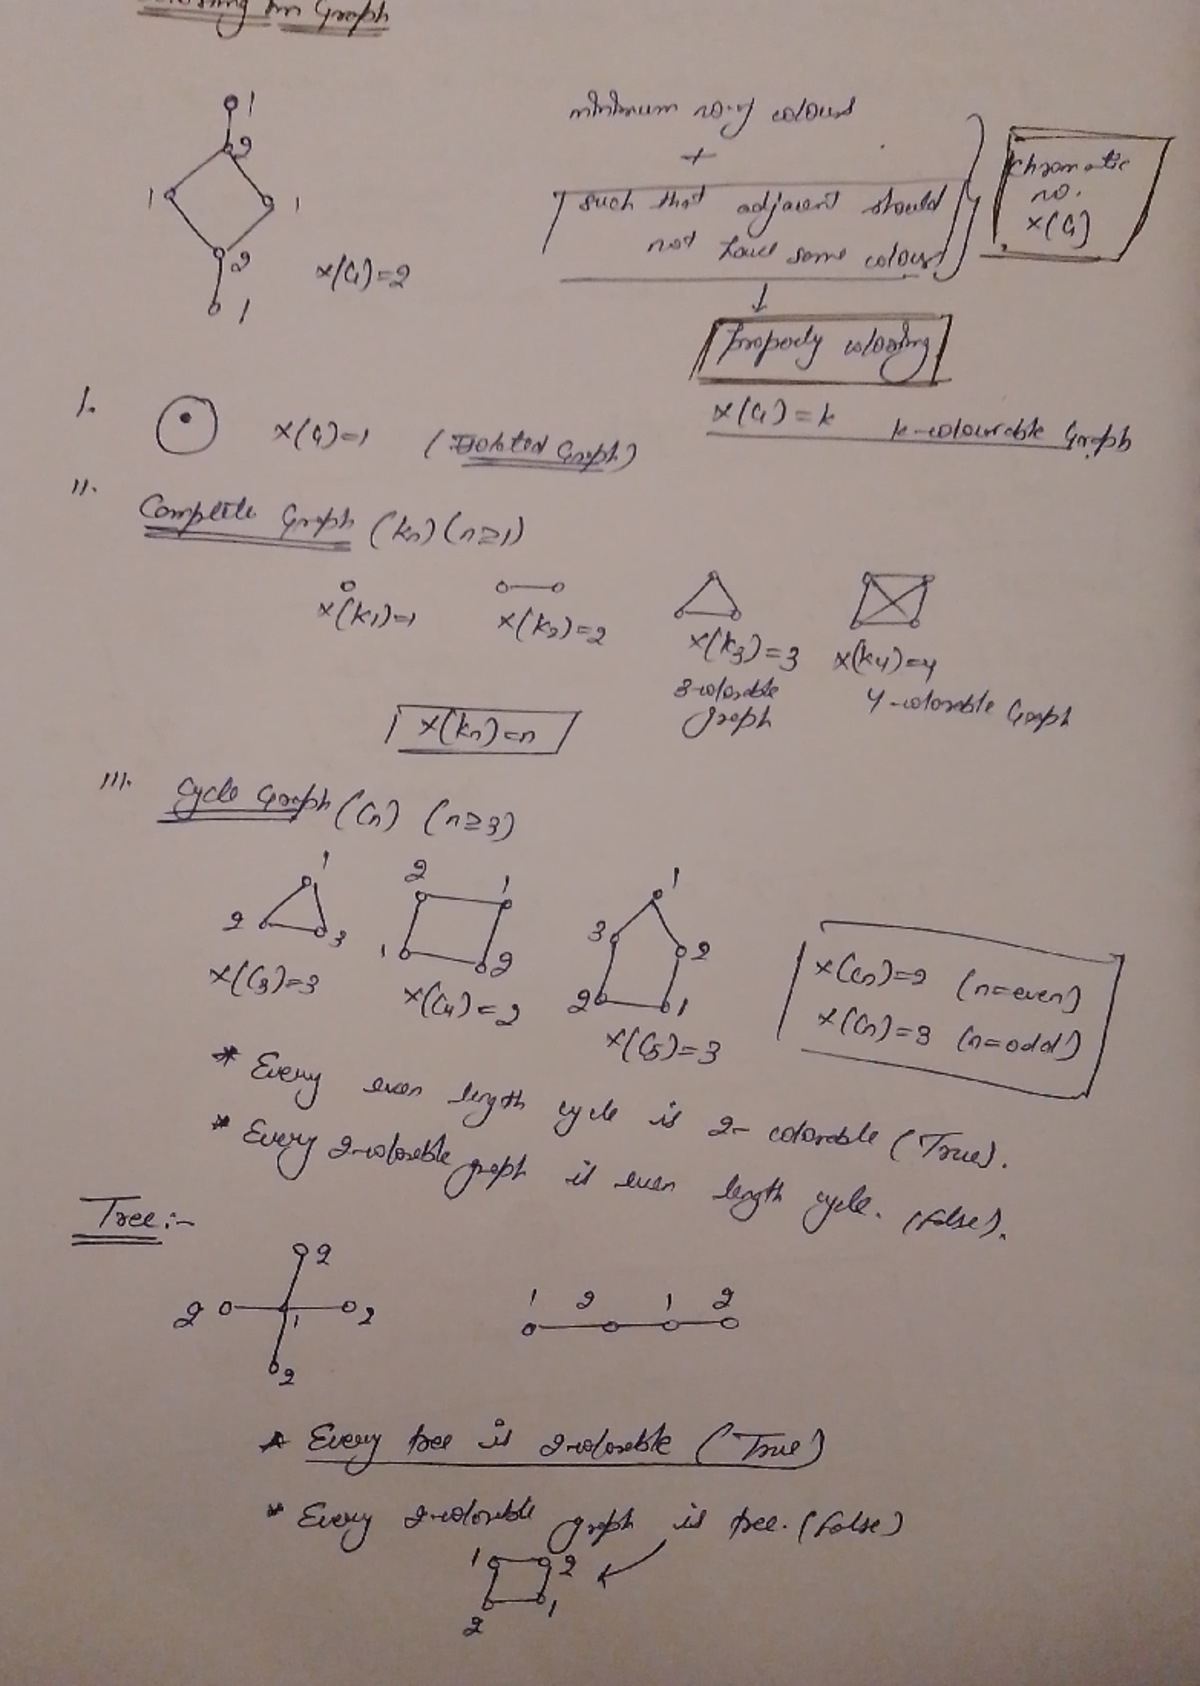 Coloring in Graph
1
2
1
1
2
1
x(G)=2
minimum no. of colours
+
such that adjacent should
not have same colours
chromatic
no.
x(G)
properly coloring
x(G)=k k-colourable Graph
I. x(G)=1 (Isolated Graph)
II. Complete Graph (kn) (n≥1)
x(k1)=1 x(k2)=2 x(k3)=3 x(k4)=4
3-colorable
graph
4-colorable Graph
x(kn)=n
III. Cycle Graph (Cn) (n≥3)
1
2 3
x(C3)=3
2 1
1 2
x(C4)=2
1
3 2
2 1
x(C5)=3
x(Cn)=2 (n=even)
x(Cn)=3 (n=odd)
* Every even length cycle is 2-colorable (True).
* Every 2-colorable graph is even length cycle. (false).
Tree:-
2
2 1 2
2
1 2 1 2
* Every tree is 2-colorable (True)
* Every 2-colorable graph is tree. (false)
1 2
2 1